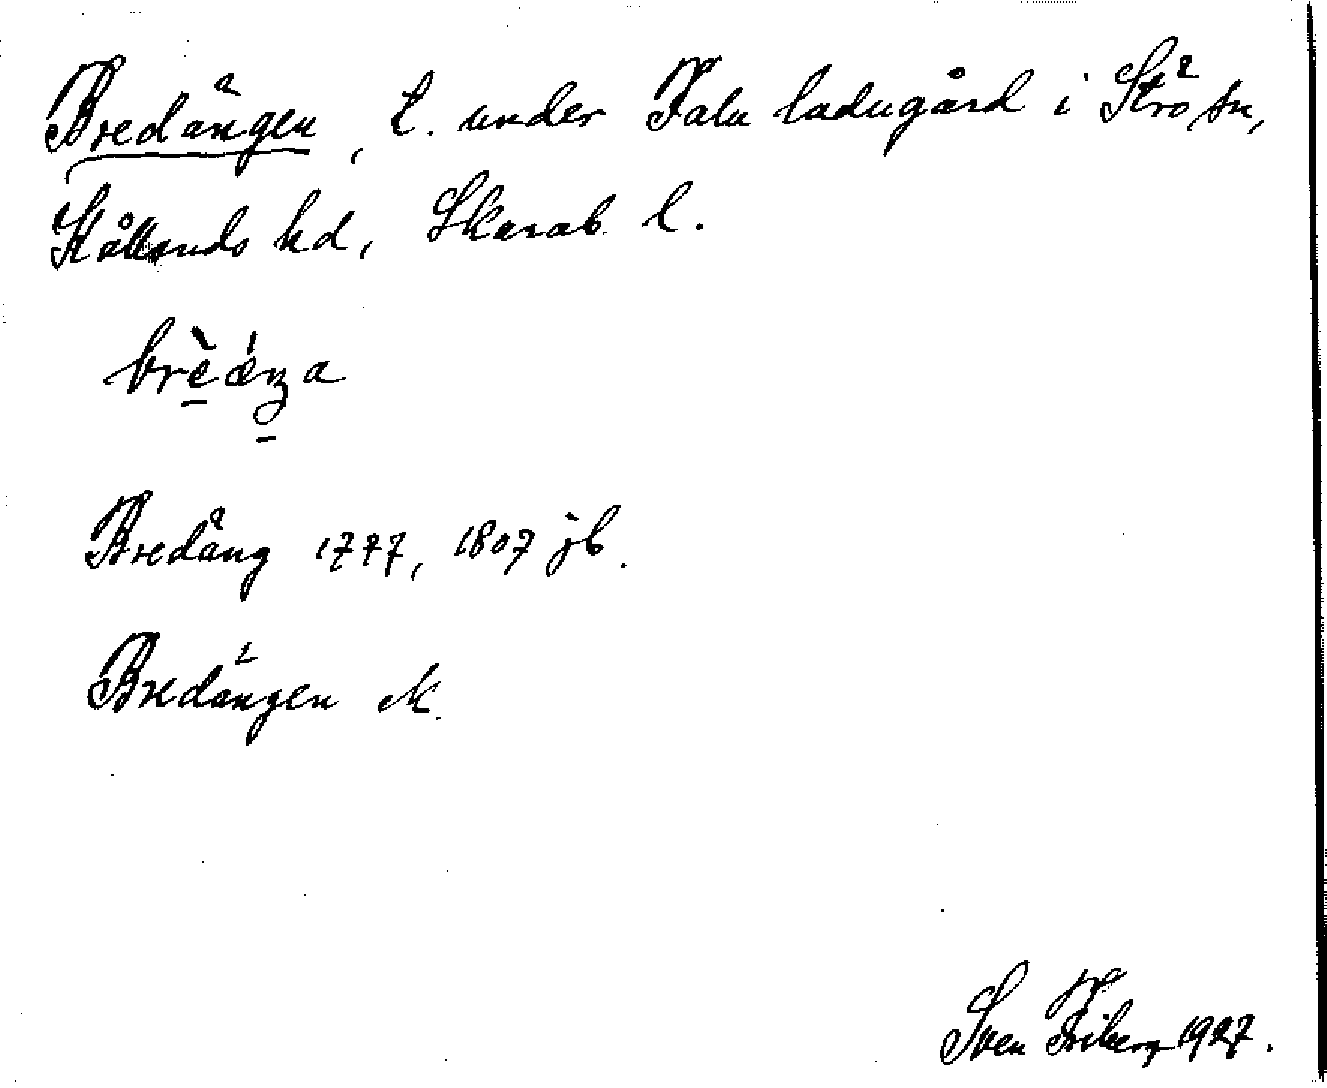 Bredängen, t. under Tala ladugård i Strö sn,
Kållands hd, Skarab. l.
brèǽŋa
Bredäng 1777, 1807 jb.
Bredängen ek.
Sven Friberg 1927.